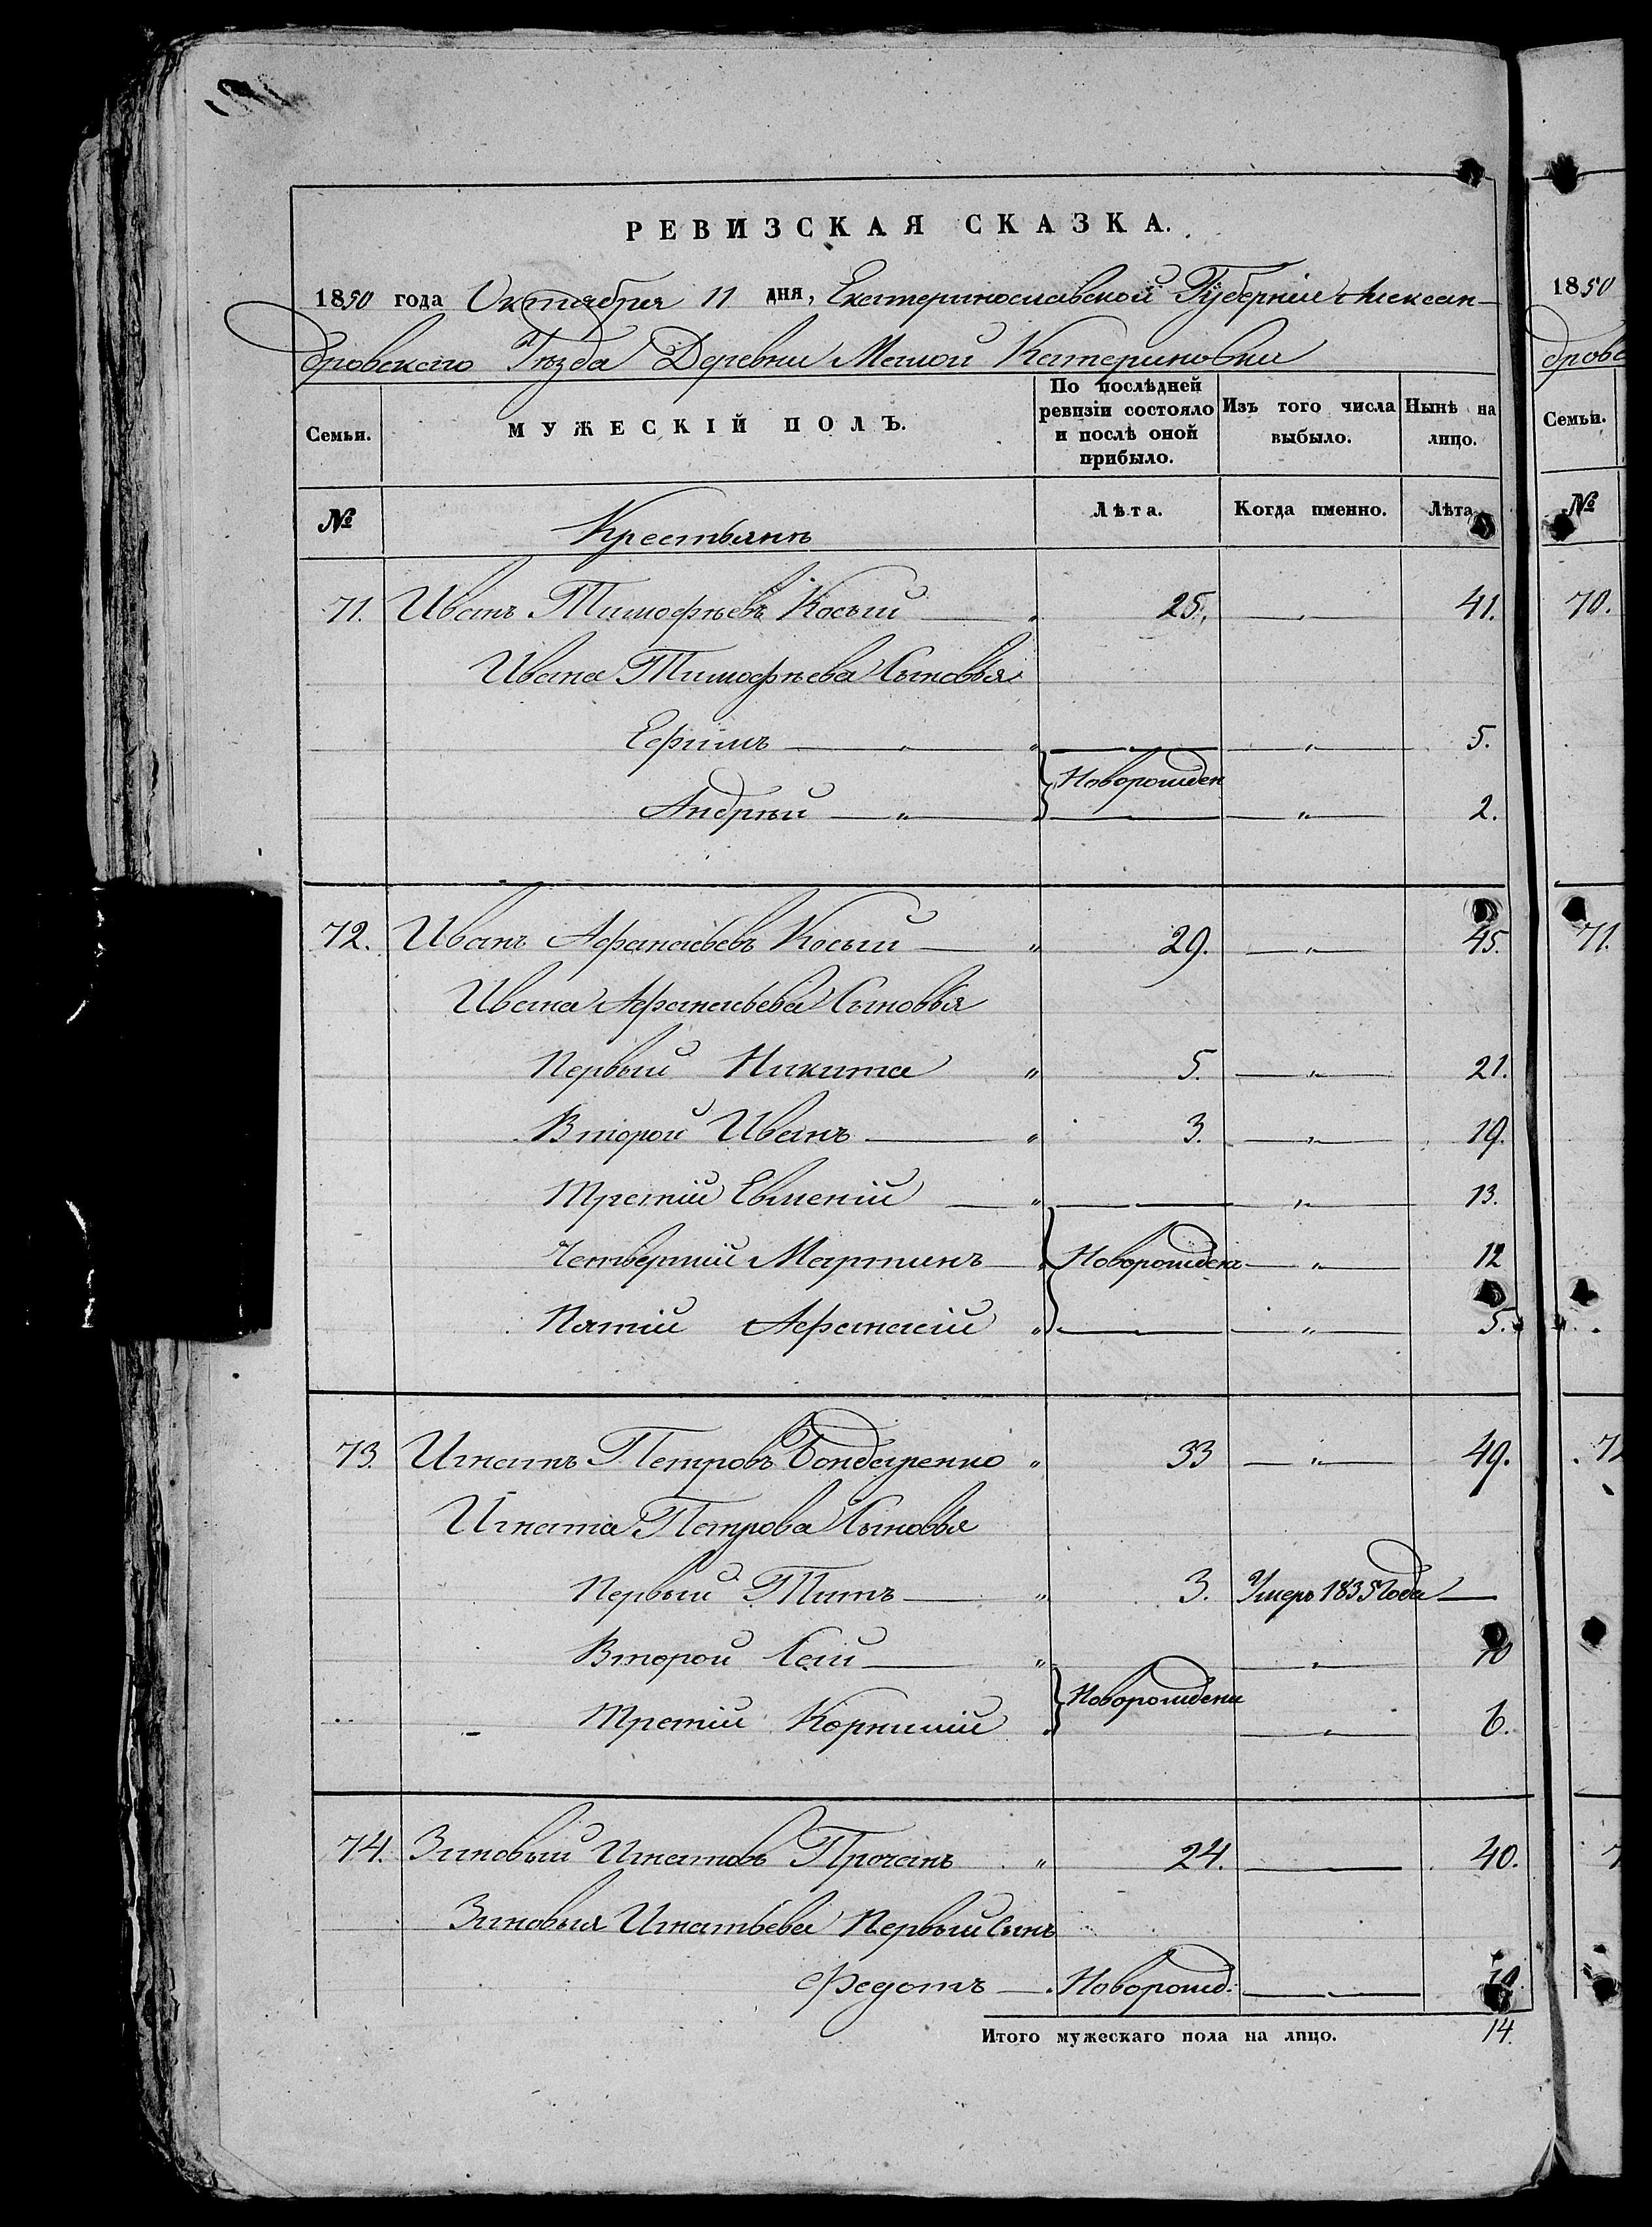 РЕВИЗСКАЯ СКАЗКА.
1850 года Октября 11 дня, Екатеринославской Губерніи Алексан-
дровскаго Уѣзда Деревни Малой Катериновки
Семьи. МУЖЕСКІЙ ПОЛЪ. По послѣдней ревизіи состояло и послѣ оной прибыло. Изъ того числа выбыло. Нынѣ на лицо.
№ Крестьянъ Лѣта. Когда именно. Лѣта
71. Иванъ Тимофѣевъ Косый 25. 41.
Ивана Тимофѣева Сыновья
Ефимъ 5.
Новорожден
Андрѣй 2.
72. Иванъ Афанасьевъ Косый 29. 45.
Ивана Афанасьева Сыновья
Первый Никита 5. 21.
Второй Иванъ 3. 19.
Третій Евменій 13.
Четвертій Мартинъ Новорожден 12
Пятій Афанасій 5.
73. Игнатъ Петровъ Бондаренко 33 49.
Игната Петрова Сыновья
Первый Титъ 3. Умеръ 1835 Года
Второй 10
Новорождени
Третій Корнилій 6.
74. Зиновый Игнатовъ Прочанъ 24. 40.
Зиновыя Игнатьева Первый Сынъ
Федотъ Новорожд:
Итого мужескаго пола на лицо. 14.
1850
дровс
Семьи.
№
70.
71.